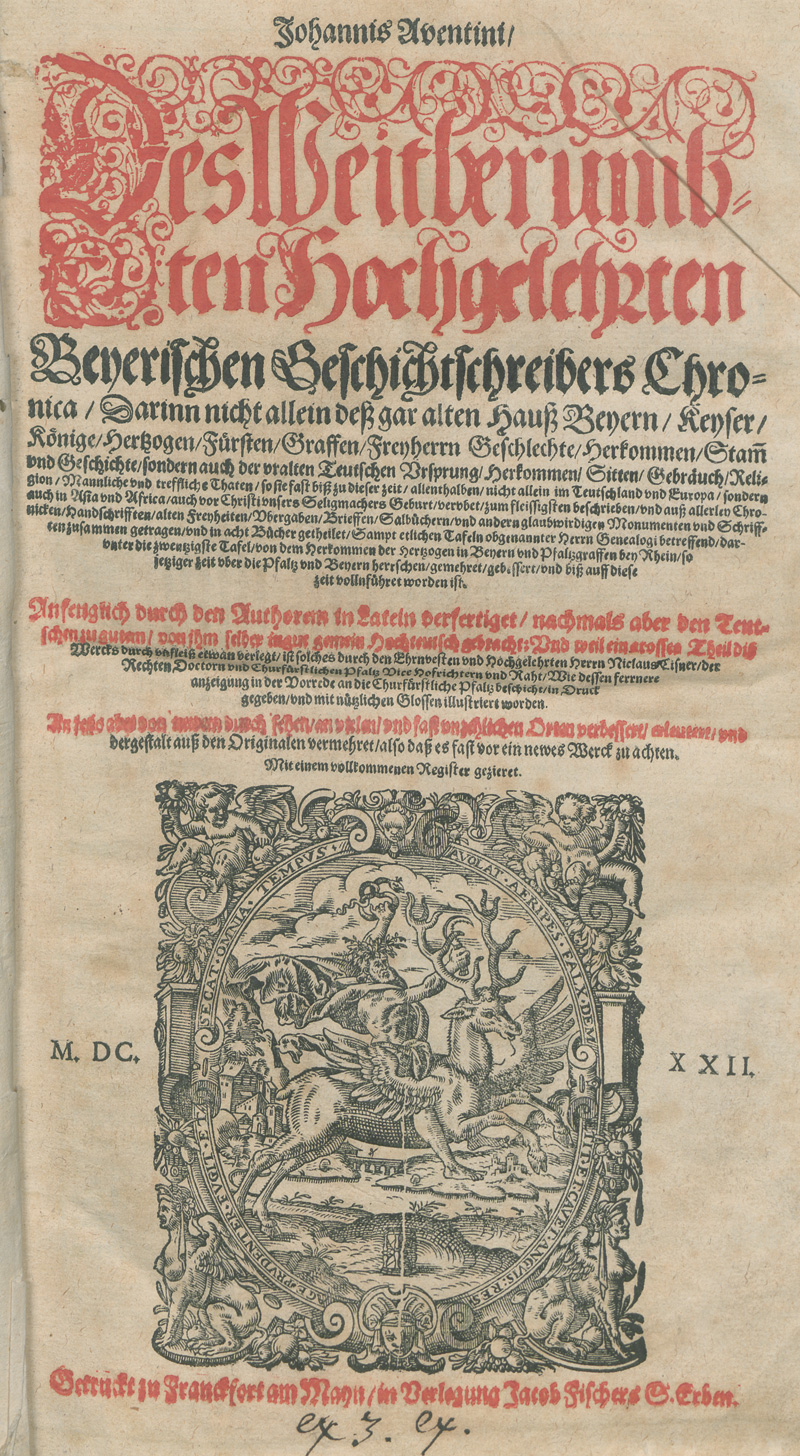 Johannis Aventini/
Des Weitberümb-
ten Hochgelehrten
Beyerischen Geschichtschreibers Chro-
nica / Darinn nicht allein deß gar alten Hauß Beyern / Keyser/
Könige/Hertzogen/Fürsten/Graffen/Freyherrn Geschlechte/Herkommen/Stam̃
vnd Geschichte/sondern auch der vralten Teutschen Vrsprung/Herkommen/ Sitten/ Gebräuch/Reli-
gion / Mannliche vnd treffliche Thaten/ so sie fast biß zu dieser zeit/ allenthalben/ nicht allein im Teutschland vnd Europa/ sondern
auch in Asia vnd Africa/auch vor Christi vnsers Seligmachers Geburt/verübet/zum fleissigsten beschrieben/vnd auß allerley Chro-
nicken/Handschrifften/alten Freyheiten/Vbergaben/Brieffen/Salbüchern/vnd andern glaubwirdigen Monumenten vnd Schriff-
ten zusammen getragen/vnd in acht Bücher getheilet/Sampt etlichen Tafeln obgenannter Herrn Genealogi betreffend/dar-
vnter die zwentzigste Tafel/von dem Herkommen der Hertzogen in Beyern vnd Pfaltzgraffen bey Rhein/so
jetziger zeit vber die Pfaltz vnd Beyern herrschen/gemehret/gebessert/vnd biß auff diese
zeit vollnführet worden ist.
Anfenglich durch den Authorem in Latein verfertiget/ nachmals aber den Teut-
schen zu gutem/ von ihm selber in gut gemein Hochteutsch gebracht: Vnd weil ein grosser Theil diß
Wercks durch vnfleiß etwan verlegt/ ist solches durch den Ehrnvesten vnd Hochgelehrten Herrn Niclaus Cisner/der
Rechten Doctorn vnd Churfürstlichen Pfaltz Vice Hofrichtern vnd Raht/Wie dessen ferrnere
anzeigung in der Vorrede an die Churfürstliche Pfaltz beschicht/in Druck
gegeben/vnd mit nützlichen Glossen illustriert worden.
An jetzo aber von newem durch sehen/an vielen/ vnd fast vnzehlichen Orten verbessert/ erleutert/ vnd
dergestalt auß den Originalen vermehret/also daß es fast vor ein newes Werck zu achten.
Mit einem vollkommenen Register gezieret.
SECAT · OMNIA · TEMPVS · AVOLAT · AERIPES · FALX
PRVDENTER · FVGIT · E
ANGVIS · RES
M. DC. XXII.
Getruckt zu Franckfort am Mayn/ in Verlegung Jacob Fischers S. Erben.
ex 3. ex.